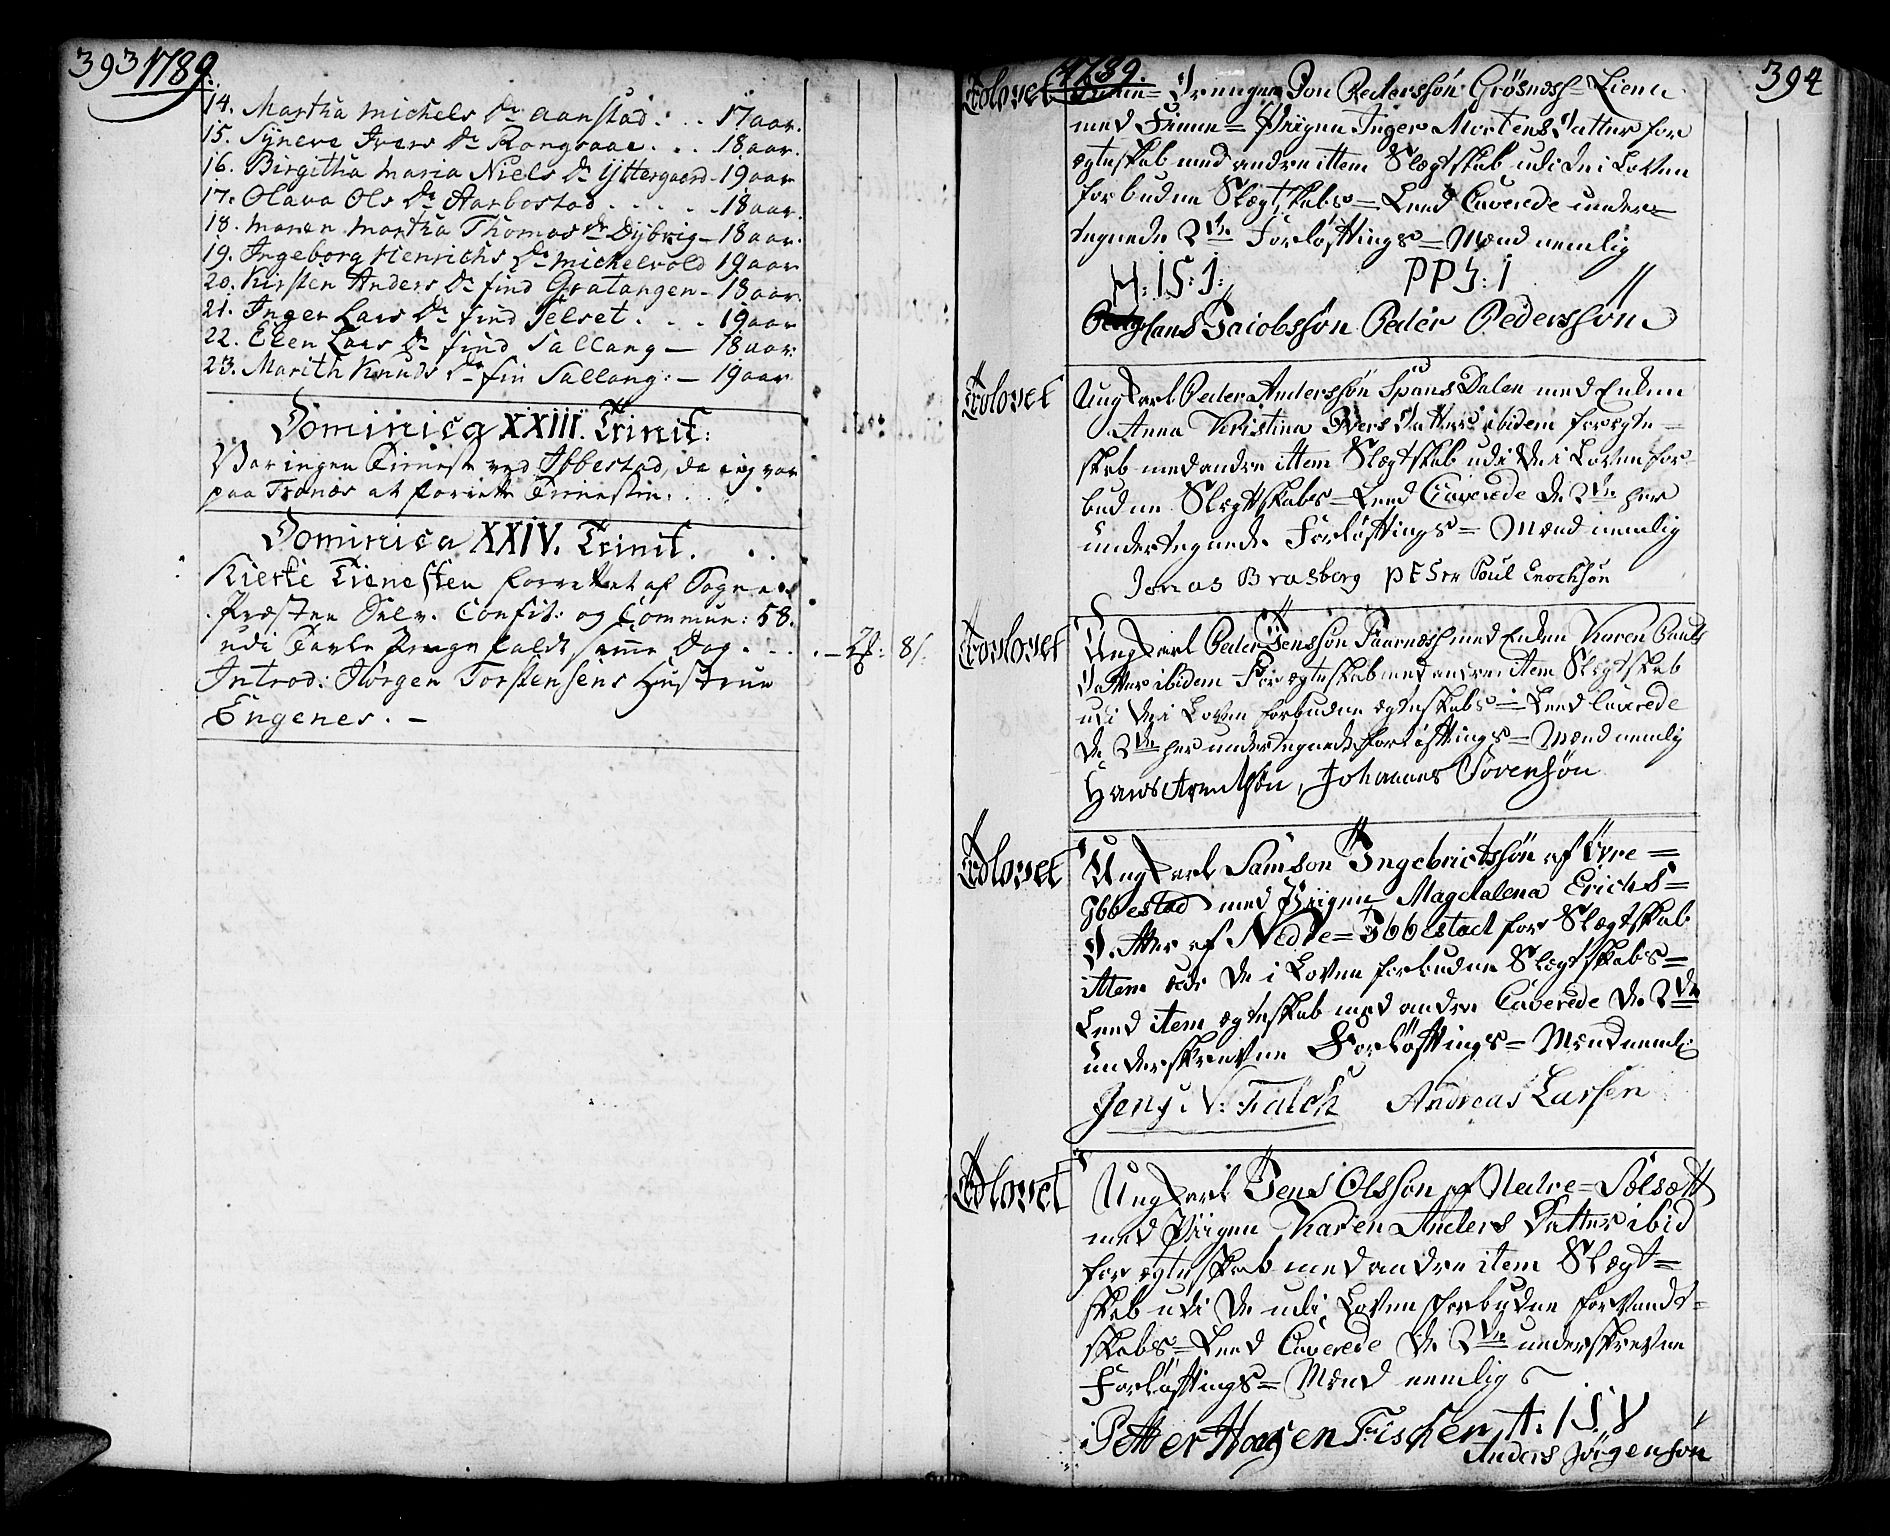 393 1789.
14. Martha Michels Dr Aanstad: . . 17 aar.
15. Syneva Ivers Dr Rongvaae. . . 18 aar.
16. Birgitha Maria Niels Dr Yttergaard - 19 aar
17. Olava Ols Dr Aarbostad . . . . . - 18 aar.
18. Maren Martha Thomas Dr Dybvig - 18 aar.
19. Ingeborg Henrichs Dr Michelvold 19 aar
20. Kirsten Anders Dr find Gratangen - 18 aar.
21. Inger Lars Dr find Selset . . . 19 aar
22. Elen Lars Dr find Sallang — 18 aar:
23. Marith Knuds Dr fin Sallang: — 19 aar
Dominica XXIII. Trinit:
Var ingen Tienest ved Ibbestad, da ieg var
paa Tranøs at forrette Tienesten. . . .
Dominica XXIV. Trinit.
Kierke Tienesten forrettet af Sogne
Præsten Selv. Confit: og Commun: 58.
udi Tavle Penge faldt samme Dag . . . . — 2 8/.
Introd: Jørgen Torstensens Hustrue
Engenes. —
1789. 394
Trolovet Drængen Jon Pederssøn Grøsnæss = Lien
med Finne = Piigen Inger Mortens Datter for
ægteskab med andre ittem Slægtskab udi de i Loven
forbudne Slægtskabs = Leed Caverede under =
tegnede 2de Forløftings = Mænd nemlig
H: I S: I: P P S: I
Hans Jacobssøn Peder Pederssøn
Trolovet Ung Karl Peder Anderssøn Spans Dalen med Enken
Anna Kristina Ivers Datter ibidem for ægte =
skab med andre ittem Slægtskab udi de i Loven for =
budne Slegtskabs = Leed Caverede de 2de her
undertegnede Forløftings = Mænd nemlig
Jonas Brasberg P E S er Poul Enochsøn
Trolovet Ung Karl Peder Jenssøn Faarnæss med Enken Karen Pauls
Datter ibidem For ægteskab med andre item Slægtskab
udi de i Loven forbudne ægteskabs = Leed Caverede
De 2de her undertegnede forløftings = Mænd nemlig
Hans Arentsøn, Johannes Sørensøn
Trolovet Ung Karl Samson Ingebrictssøn af Øvre =
Ibbestad med Piigen Magdalena Erichs =
Datter af Nedre = Ibbestad for Slægtskab
ittem udi de i Loven forbudne Slægtskabs =
Leed item ægteskab med andre Caverede de 2de
underskrevne Forløftings = Mænd nemlig
Jens N: Falch Andreas Larsen
Trolovet Ung Karl Jens Olssøn af Nedre = Sølsætt
med Piigen Karen Anders Datter ibid
for ægteskab med andre item Slægt =
skab udi de udi Loven forbudne forvandt =
skabs = Leed Caverede de 2de underskrevne
Forløftings = Mænd nemlig
Petter Hagen Fischer A. I S V
Anders Jørgensøn